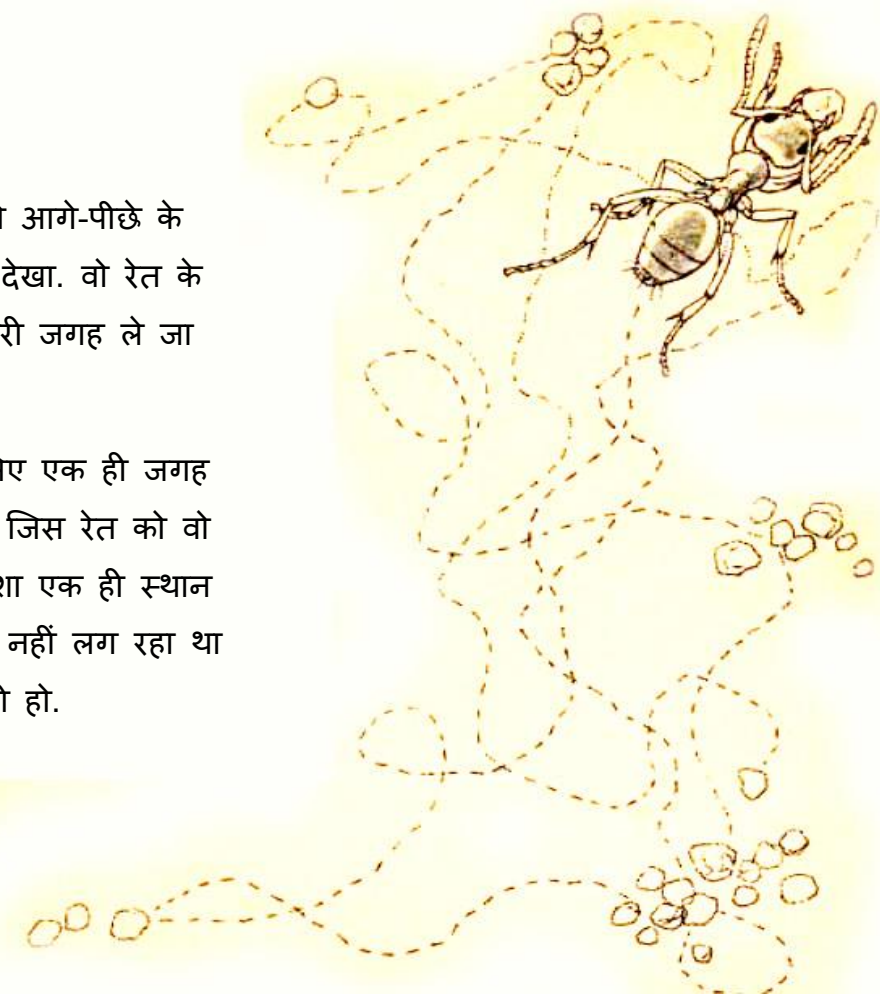 आगे-पीछे के
देखा. वो रेत के
जगह ले जा
एक ही जगह
जिस रेत को वो
एक ही स्थान
नहीं लग रहा था
हो.